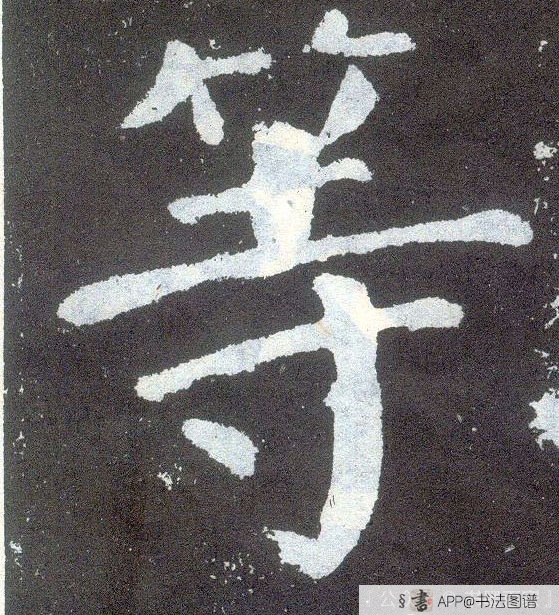 等
§書 APP@书法图谱